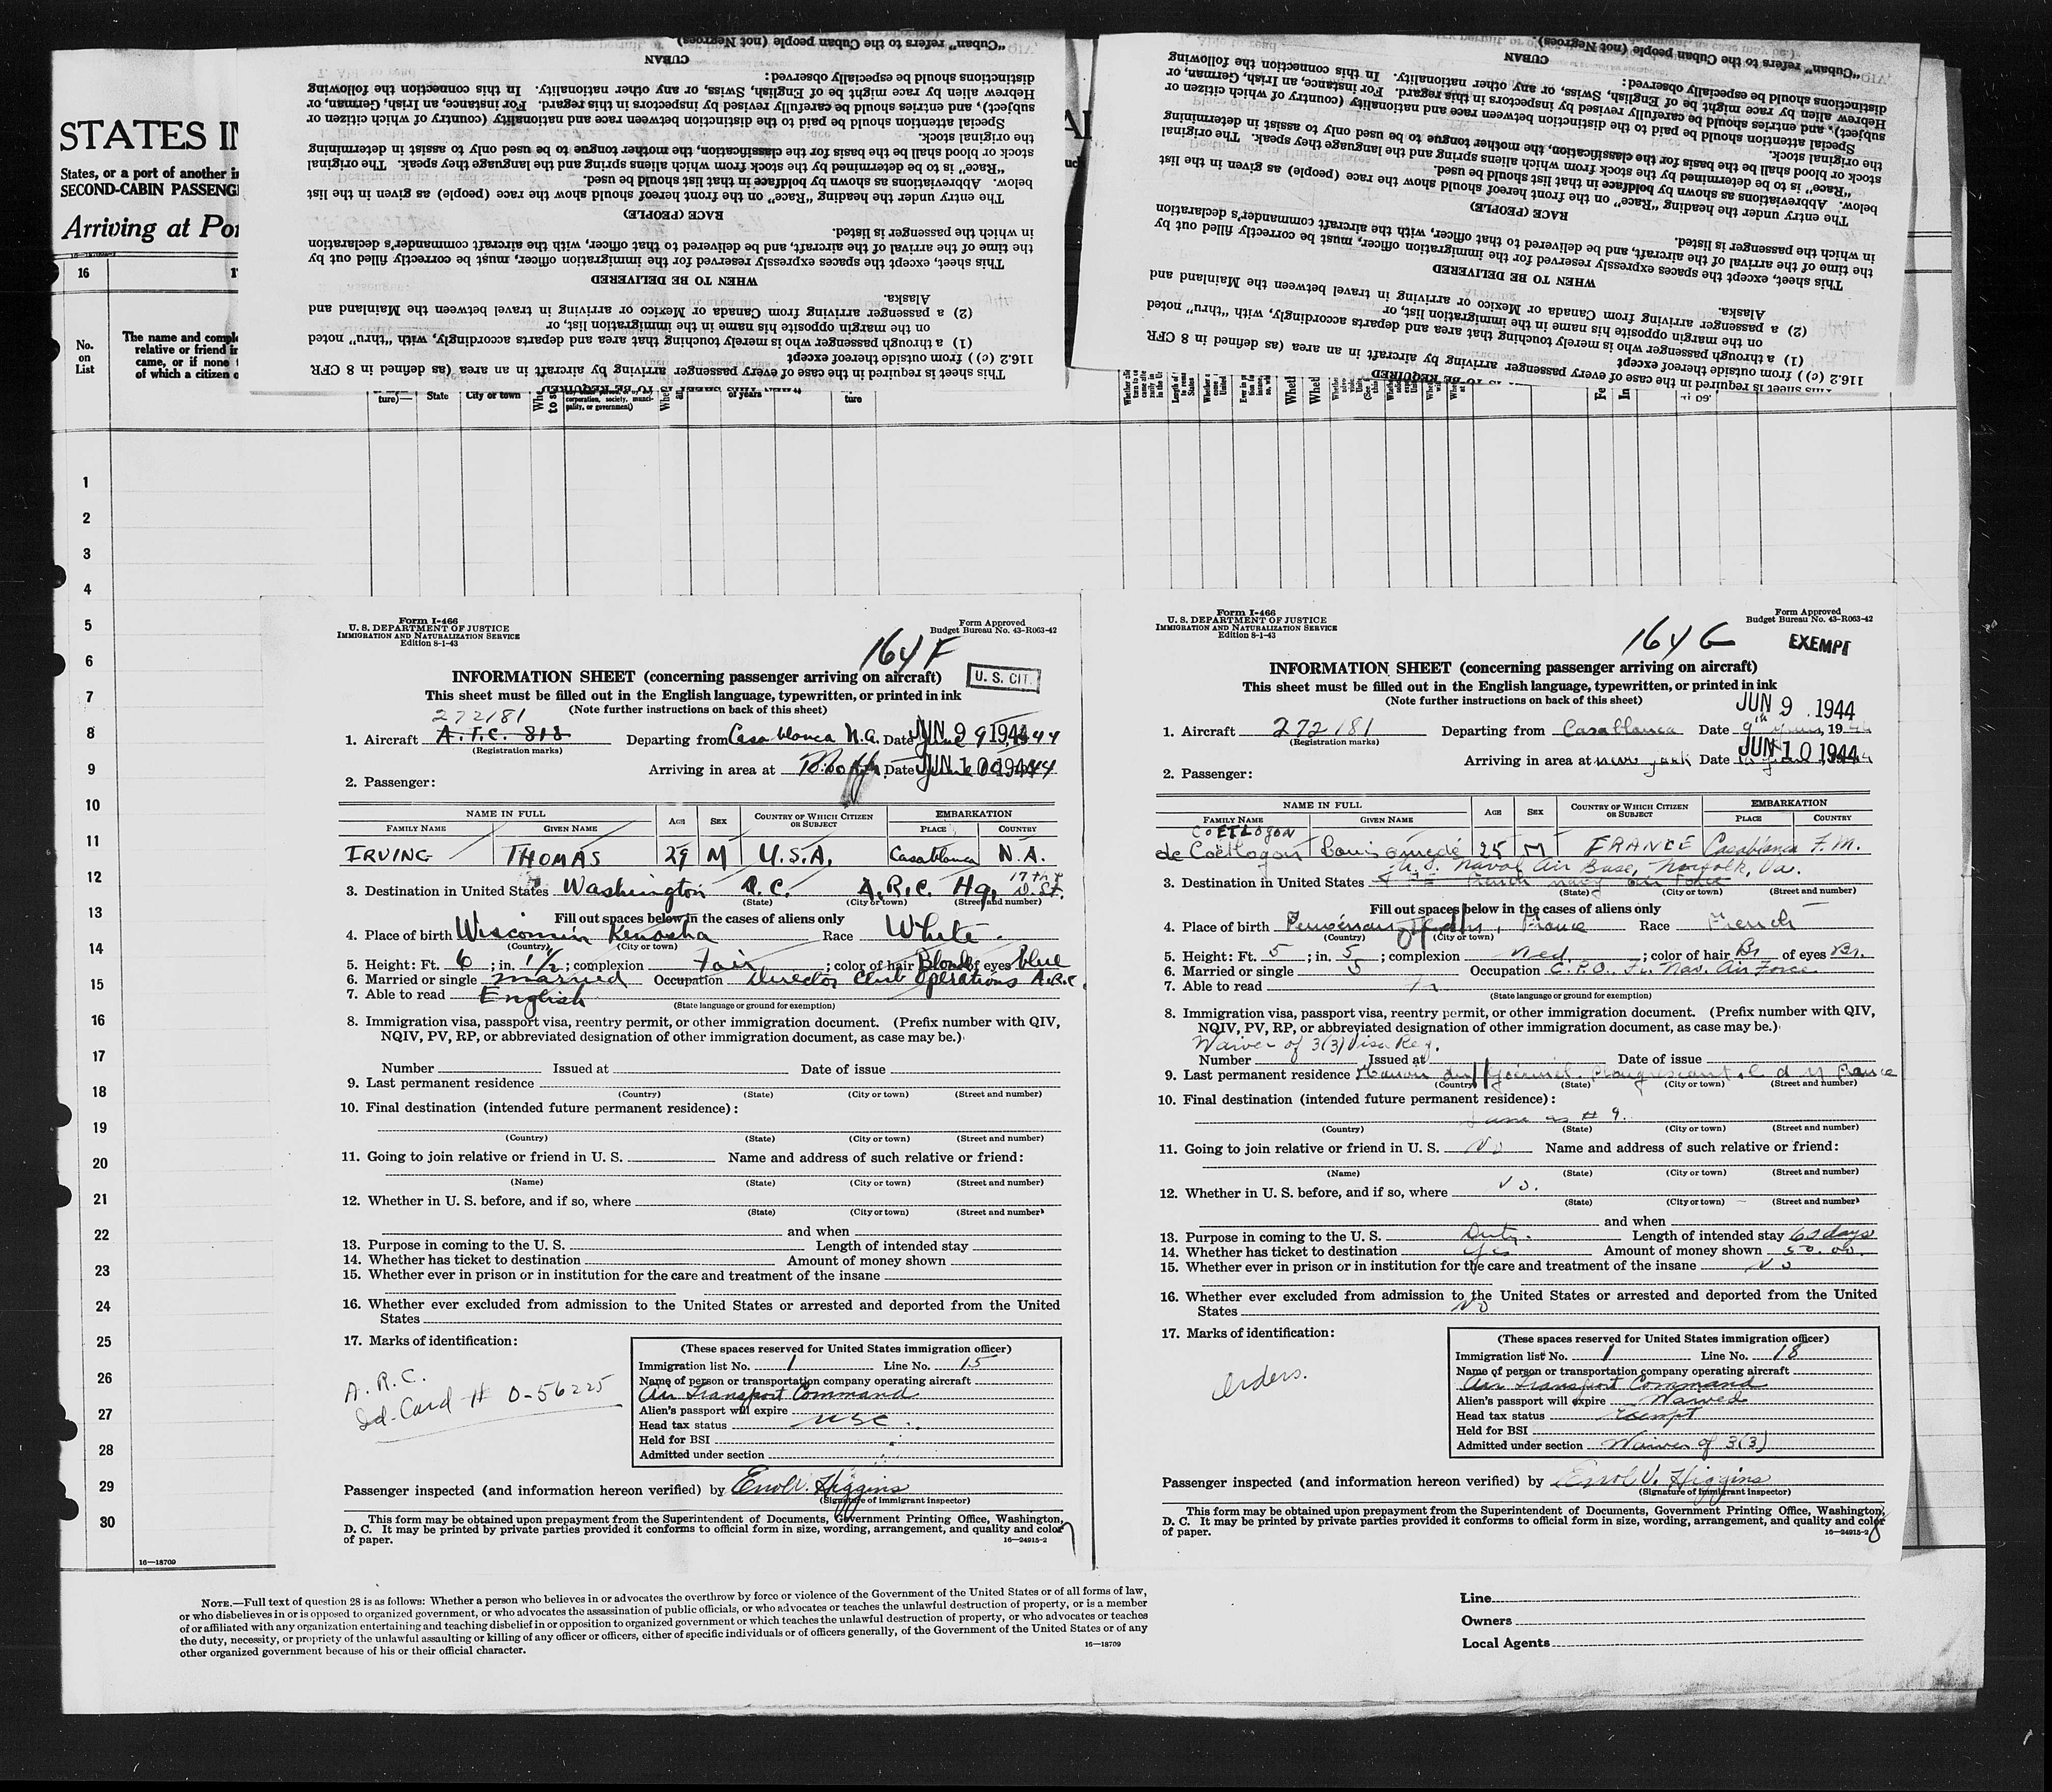 STATES IN
States, or a port of another in
SECOND-CABIN PASSENG
Arriving at Por
16
No.
on
List
The name and comple
relative or friend in
came, or if none
of which a citizen o
"Cuban" refers to the Cuban people (not Negroes).
CUBAN
distinctions should be especially observed:
Hebrew alien by race might be of English, Swiss, or any other nationality. In this connection the following
subject), and entries should be carefully revised by inspectors in this regard. For instance, an Irish, German, or
Special attention should be paid to the distinction between race and nationality (country of which citizen or
the original stock.
stock or blood shall be the basis for the classification, the mother tongue to be used only to assist in determining
"Race" is to be determined by the stock from which aliens spring and the language they speak. The original
below. Abbreviations as shown by boldface in that list should be used.
The entry under the heading "Race" on the front hereof should show the race (people) as given in the list
RACE (PEOPLE)
in which the passenger is listed.
the time of the arrival of the aircraft, and be delivered to that officer, with the aircraft commander's declaration
This sheet, except the spaces expressly reserved for the immigration officer, must be correctly filled out by
WHEN TO BE DELIVERED
Alaska.
(2) a passenger arriving from Canada or Mexico or arriving in travel between the Mainland and
on the margin opposite his name in the immigration list, or
(1) a through passenger who is merely touching that area and departs accordingly, with "thru" noted
116.2 (c)) from outside thereof except
This sheet is required in the case of every passenger arriving by aircraft in an area (as defined in 8 CFR
"Cuban" refers to the Cuban people (not Negroes).
CUBAN
distinctions should be especially observed:
Hebrew alien by race might be of English, Swiss, or any other nationality. In this connection the following
subject), and entries should be carefully revised by inspectors in this regard. For instance, an Irish, German, or
Special attention should be paid to the distinction between race and nationality (country of which citizen or
the original stock.
stock or blood shall be the basis for the classification, the mother tongue to be used only to assist in determining
"Race" is to be determined by the stock from which aliens spring and the language they speak. The original
below. Abbreviations as shown by boldface in that list should be used.
The entry under the heading "Race" on the front hereof should show the race (people) as given in the list
RACE (PEOPLE)
in which the passenger is listed.
the time of the arrival of the aircraft, and be delivered to that officer, with the aircraft commander's declaration
This sheet, except the spaces expressly reserved for the immigration officer, must be correctly filled out by
WHEN TO BE DELIVERED
Alaska.
(2) a passenger arriving from Canada or Mexico or arriving in travel between the Mainland and
on the margin opposite his name in the immigration list, or
(1) a through passenger who is merely touching that area and departs accordingly, with "thru" noted
116.2 (c)) from outside thereof except
This sheet is required in the case of every passenger arriving by aircraft in an area (as defined in 8 CFR
ture)— State City or town of years ture
1
2
3
4
5
6
7
8
9
10
11
12
13
14
15
16
17
18
19
20
21
22
23
24
25
26
27
28
29
30
16—18709
Form I-466
U. S. DEPARTMENT OF JUSTICE
IMMIGRATION AND NATURALIZATION SERVICE
Edition 8-1-43
Form Approved
Budget Bureau No. 43-R063-42
164 F
INFORMATION SHEET (concerning passenger arriving on aircraft) U. S. CIT.
This sheet must be filled out in the English language, typewritten, or printed in ink
(Note further instructions on back of this sheet)
272181
1. Aircraft A.T.C. 818 Departing from Casablanca N.A. Date JUN 9 1944
(Registration marks)
Arriving in area at Date JUN 10 1944
2. Passenger:
NAME IN FULL AGE SEX COUNTRY OF WHICH CITIZEN OR SUBJECT EMBARKATION
FAMILY NAME GIVEN NAME PLACE COUNTRY
IRVING THOMAS 29 M U.S.A. Casablanca N.A.
3. Destination in United States Washington D.C. A.R.C. Hq. 17th & D. St.
(State) (City or town) (Street and number)
Fill out spaces below in the cases of aliens only
4. Place of birth Wisconsin Kenosha Race White.
(Country) (City or town)
5. Height: Ft. 6; in. 1 1/2; complexion Fair; color of hair Blonde of eyes blue
6. Married or single married Occupation Director Club Operations A.R.C.
7. Able to read English
(State language or ground for exemption)
8. Immigration visa, passport visa, reentry permit, or other immigration document. (Prefix number with QIV,
NQIV, PV, RP, or abbreviated designation of other immigration document, as case may be.)
Number Issued at Date of issue
9. Last permanent residence
(Country) (State) (City or town) (Street and number)
10. Final destination (intended future permanent residence):
(Country) (State) (City or town) (Street and number)
11. Going to join relative or friend in U. S. Name and address of such relative or friend:
(Name) (State) (City or town) (Street and number)
12. Whether in U. S. before, and if so, where
(State) (City or town) (Street and number)
and when
13. Purpose in coming to the U. S. Length of intended stay
14. Whether has ticket to destination Amount of money shown
15. Whether ever in prison or in institution for the care and treatment of the insane
16. Whether ever excluded from admission to the United States or arrested and deported from the United
States
17. Marks of identification:
A.R.C.
Id-Card # 0-56225
(These spaces reserved for United States immigration officer)
Immigration list No. 1 Line No. 15
Name of person or transportation company operating aircraft
Air Transport Command
Alien's passport will expire
Head tax status USC
Held for BSI
Admitted under section
Passenger inspected (and information hereon verified) by Errol V. Higgins
(Signature of immigrant inspector)
This form may be obtained upon prepayment from the Superintendent of Documents, Government Printing Office, Washington,
D. C. It may be printed by private parties provided it conforms to official form in size, wording, arrangement, and quality and color
of paper. 16—24915-2
7
Form I-466
U. S. DEPARTMENT OF JUSTICE
IMMIGRATION AND NATURALIZATION SERVICE
Edition 8-1-43
Form Approved
Budget Bureau No. 43-R063-42
164 G EXEMPT
INFORMATION SHEET (concerning passenger arriving on aircraft)
This sheet must be filled out in the English language, typewritten, or printed in ink
(Note further instructions on back of this sheet) JUN 9 1944
1. Aircraft 272181 Departing from Casablanca Date 9th June, 19
(Registration marks)
Arriving in area at New York Date JUN 10 1944
2. Passenger:
NAME IN FULL AGE SEX COUNTRY OF WHICH CITIZEN OR SUBJECT EMBARKATION
FAMILY NAME GIVEN NAME PLACE COUNTRY
COETLOGON
de Coëtlogon Louis 25 M FRANCE Casablanca F.M.
Naval Air Base, Norfolk, Va.
3. Destination in United States French Navy Air Force
(State) (City or town) (Street and number)
Fill out spaces below in the cases of aliens only
4. Place of birth France Race French
(Country) (City or town)
5. Height: Ft. 5; in. 5; complexion med.; color of hair Br of eyes Br.
6. Married or single S Occupation C.P.O. Fr. Nav. Air Force
7. Able to read Fr
(State language or ground for exemption)
8. Immigration visa, passport visa, reentry permit, or other immigration document. (Prefix number with QIV,
NQIV, PV, RP, or abbreviated designation of other immigration document, as case may be.)
Waiver of 3(3) Visa Reg.
Number Issued at Date of issue
9. Last permanent residence Manoir du Plougrescant C d N France
(Country) (State) (City or town) (Street and number)
10. Final destination (intended future permanent residence):
same as # 9.
(Country) (State) (City or town) (Street and number)
11. Going to join relative or friend in U. S. No Name and address of such relative or friend:
(Name) (State) (City or town) (Street and number)
12. Whether in U. S. before, and if so, where No.
(State) (City or town) (Street and number)
and when
13. Purpose in coming to the U. S. Duty. Length of intended stay 60 days
14. Whether has ticket to destination Yes Amount of money shown 50.00
15. Whether ever in prison or in institution for the care and treatment of the insane No
16. Whether ever excluded from admission to the United States or arrested and deported from the United
States No
17. Marks of identification:
Orders.
(These spaces reserved for United States immigration officer)
Immigration list No. 1 Line No. 18
Name of person or transportation company operating aircraft
Air Transport Command
Alien's passport will expire Waived
Head tax status Exempt
Held for BSI
Admitted under section Waiver of 3(3)
Passenger inspected (and information hereon verified) by Errol V. Higgins
(Signature of immigrant inspector)
This form may be obtained upon prepayment from the Superintendent of Documents, Government Printing Office, Washington,
D. C. It may be printed by private parties provided it conforms to official form in size, wording, arrangement, and quality and color
of paper. 16—24915-2
8
NOTE.—Full text of question 28 is as follows: Whether a person who believes in or advocates the overthrow by force or violence of the Government of the United States or of all forms of law,
or who disbelieves in or is opposed to organized government, or who advocates the assassination of public officials, or who advocates or teaches the unlawful destruction of property, or is a member
of or affiliated with any organization entertaining and teaching disbelief in or opposition to organized government or which teaches the unlawful destruction of property, or who advocates or teaches
the duty, necessity, or propriety of the unlawful assaulting or killing of any officer or officers, either of specific individuals or of officers generally, of the Government of the United States or of any
other organized government because of his or their official character.
16—18709
Line
Owners
Local Agents